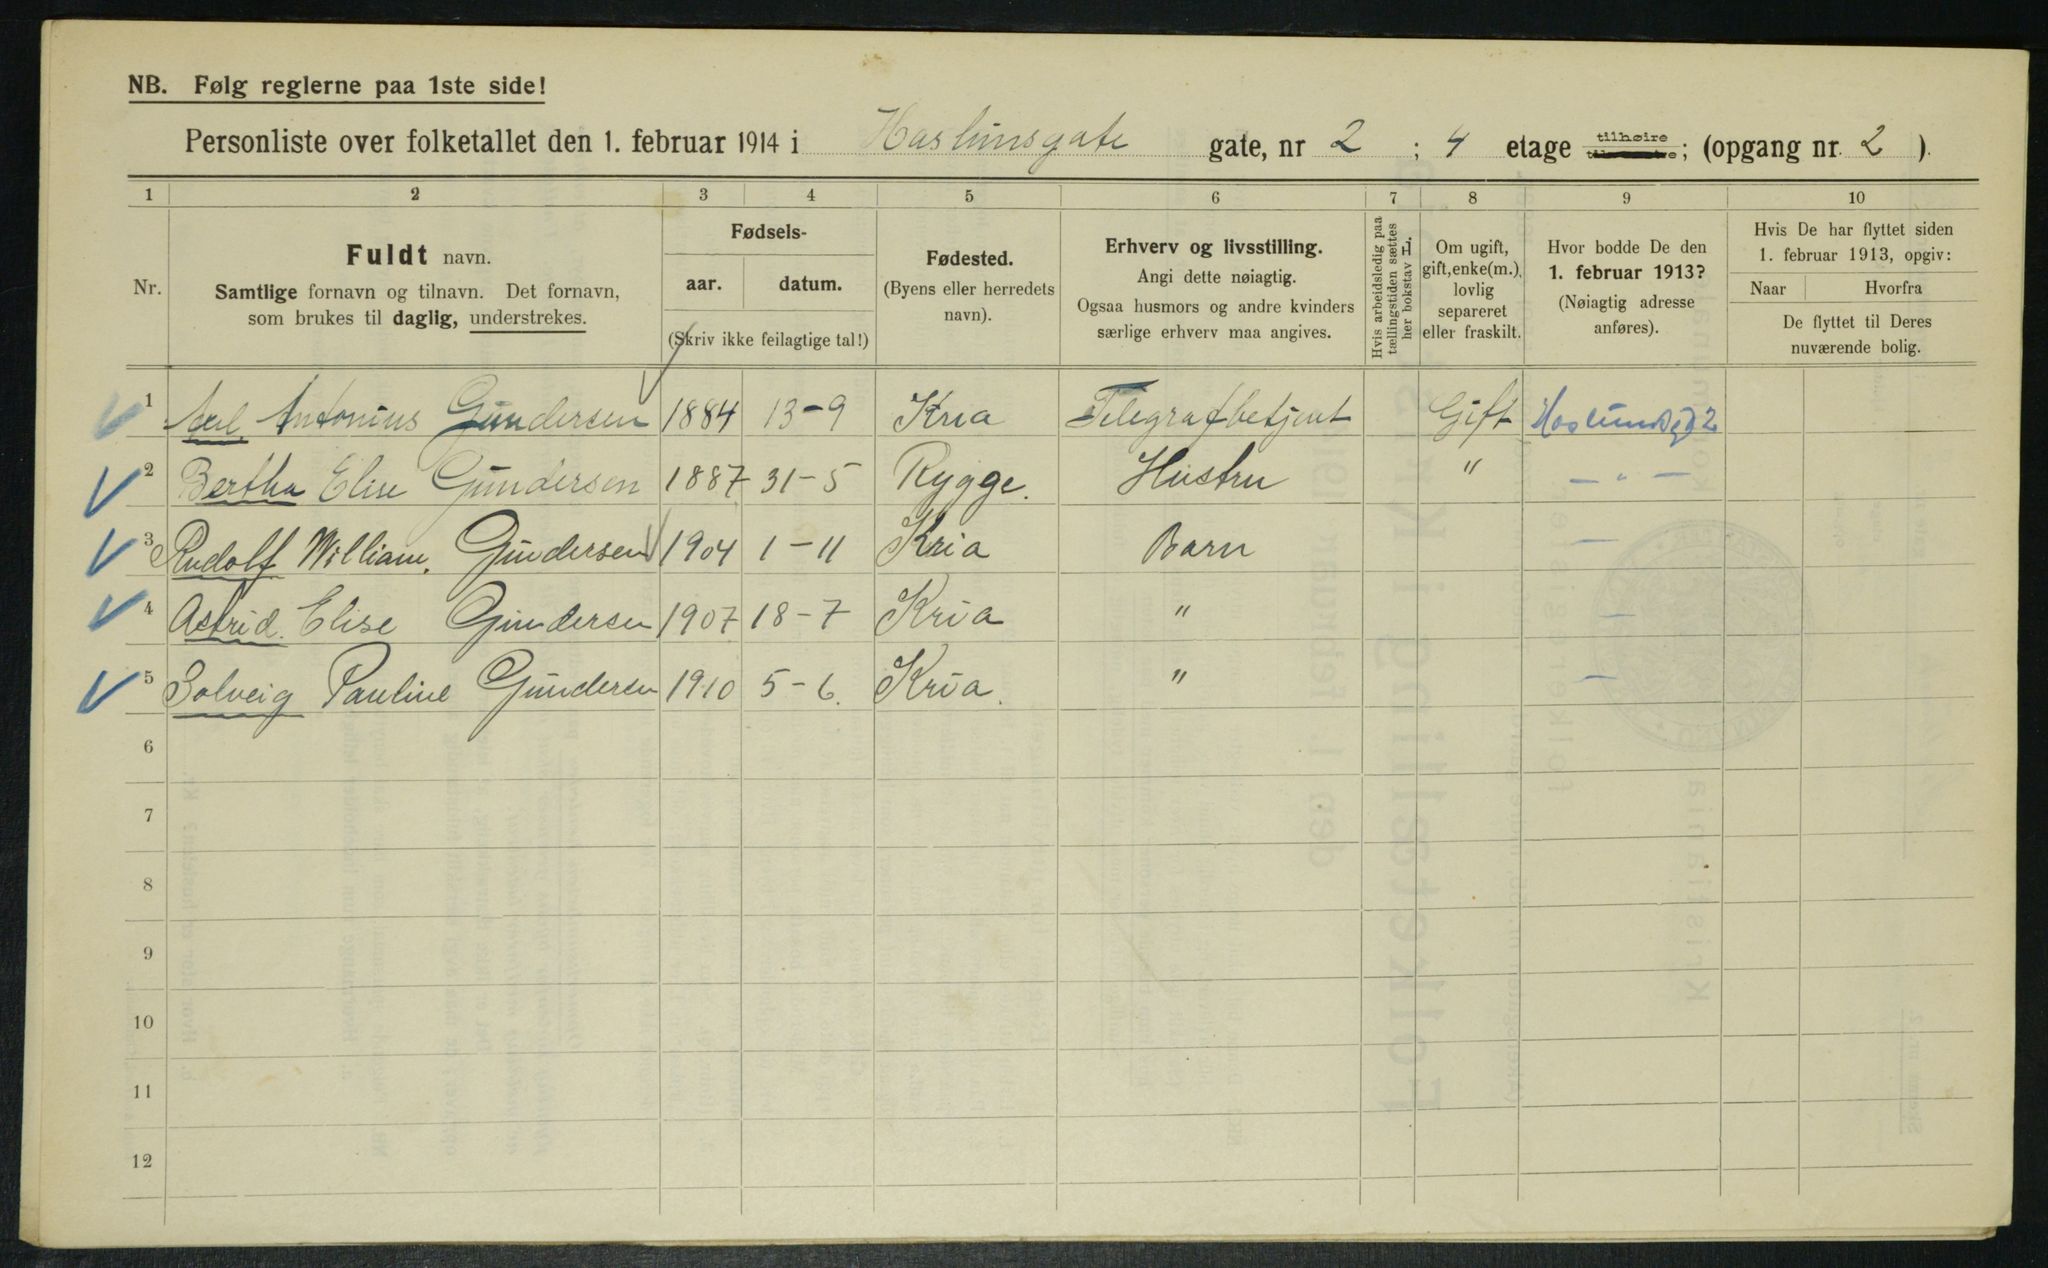 NB. Følg reglerne paa 1ste side!
Personliste over folketallet den 1. februar 1914 i Haslunsgate gate, nr 2 ; 4 etage tilhøire ; (opgang nr 2 ).
1 2 3 4 5 6 7 8 9 10
Nr.
Fuldt navn.
Samtlige fornavn og tilnavn. Det fornavn,
som brukes til daglig, understrekes.
Fødsels-
aar. datum.
(Skriv ikke feilagtige tal!)
Fødested.
(Byens eller herredets
navn).
Erhverv og livsstilling.
Angi dette nøiagtig.
Ogsaa husmors og andre kvinders
særlige erhverv maa angives.
Hvis arbeidsledig paa
tællingstiden sættes
her bokstav
Om ugift,
gift, enke(m.),
lovlig
separeret
eller fraskilt.
Hvor bodde De den
1. februar 1913?
(Nøiagtig adresse
anføres).
Hvis De har flyttet siden
1. februar 1913, opgiv:
Naar Hvorfra
De flyttet til Deres
nuværende bolig.
1 Antonius Gundersen 1884 13-9 Kria Telegrafbetjent Gift Haslundsg 2
2 Bertha Elise Gundersen 1887 31-5 Rygge. Hustru " — " —
3 Rudolf William. Gundersen 1904 1-11 Kria Barn —
4 Astrid. Elise Gundersen 1907 18-7 Kria " —
5 Solveig Pauline Gundersen 1910 5-6. Kria. " —
6
7
8
9
10
11
12